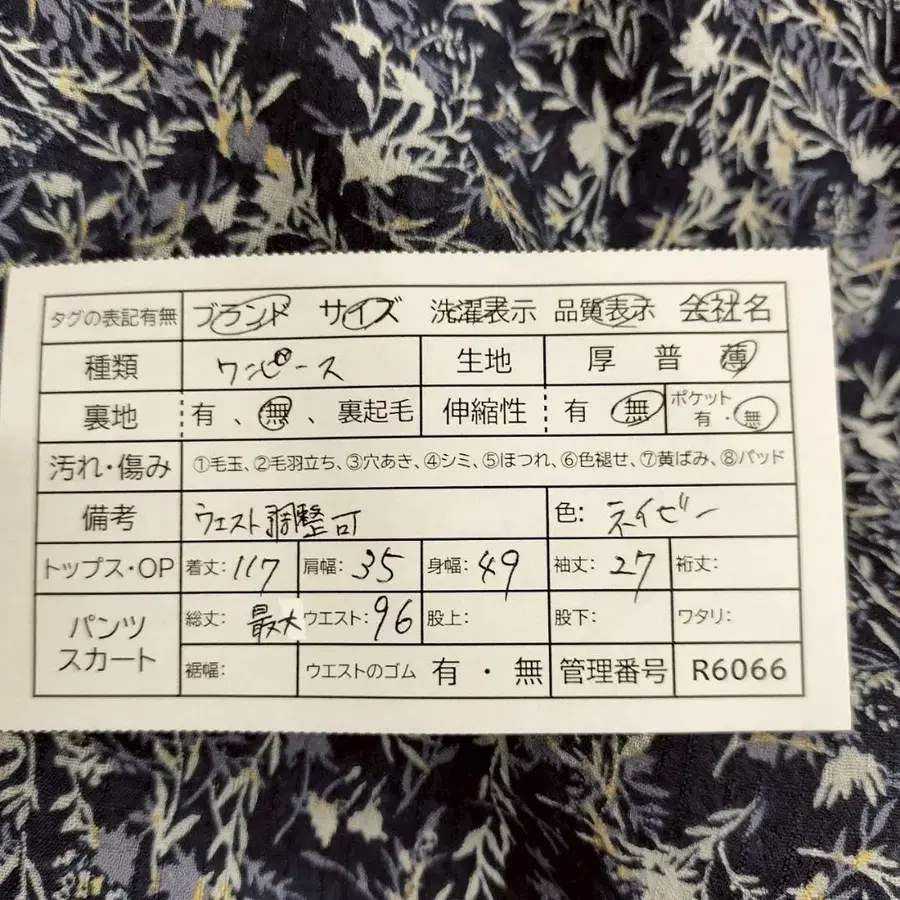 タグの表記有無 ブランド サイズ 洗濯表示 品質表示 会社名
種類 ワンピース 生地 厚 普 薄
裏地 有、無、裏起毛 伸縮性 有 無 ポケット 有・無
汚れ・傷み ①毛玉、②毛羽立ち、③穴あき、④シミ、⑤ほつれ、⑥色褪せ、⑦黄ばみ、⑧パッド
備考 ウエスト調整可 色: ネイビー
トップス・OP 着丈: 117 肩幅: 35 身幅: 49 袖丈: 27 裄丈:
パンツ スカート 総丈: 最大 ウエスト: 96 股上: 股下: ワタリ:
裾幅: ウエストのゴム 有・無 管理番号 R6066